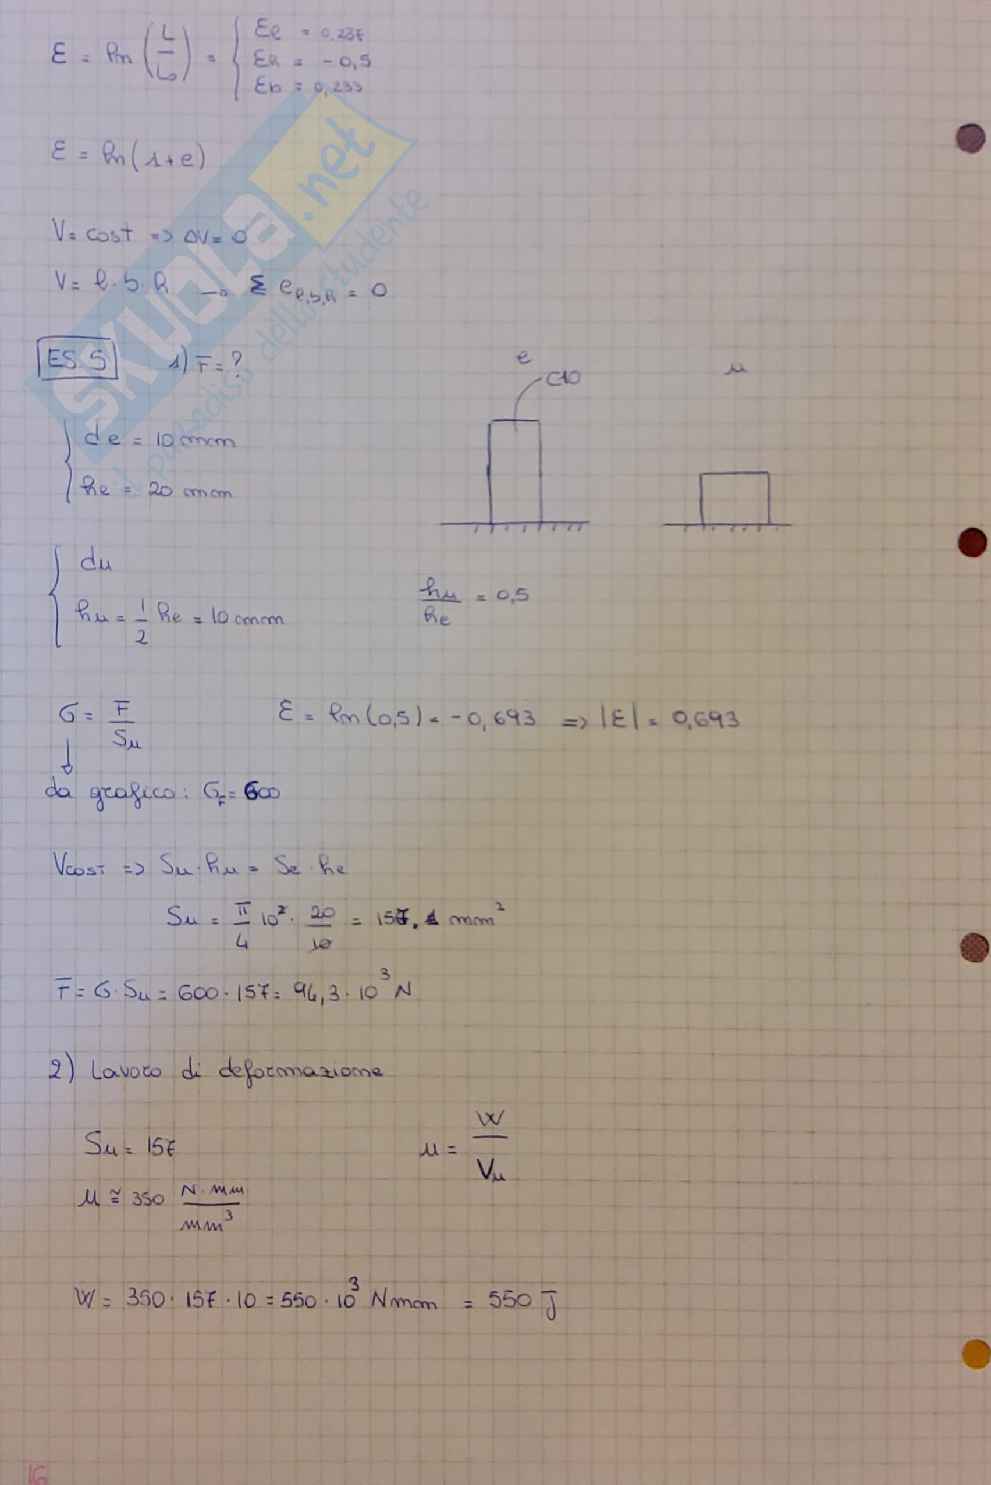 ε = ln (L/L₀) = { εe = 0,237
εh = -0,5
εb = 0,233
ε = ln(1+e)
V = cost => ΔV = 0
V = l·b·h → Σ e l,b,h = 0
ES 5 1) F = ?
e
C10
u
de = 10 mm
he = 20 mm
du
hu = 1/2 he = 10 mm
hu/he = 0,5
σ = F/Su ε = ln(0,5) = -0,693 => |ε| = 0,693
↓
da grafico: σF = 600
Vcost => Su·hu = Se·he
Su = π/4 10² · 20/10 = 157,1 mm²
F = σ·Su = 600·157 = 94,3·10³ N
2) Lavoro di deformazione
Su = 157 u = W/Vu
u ≅ 350 N·mm/mm³
W = 350·157·10 = 550·10³ Nmm = 550 J
16
SKUOLA.net